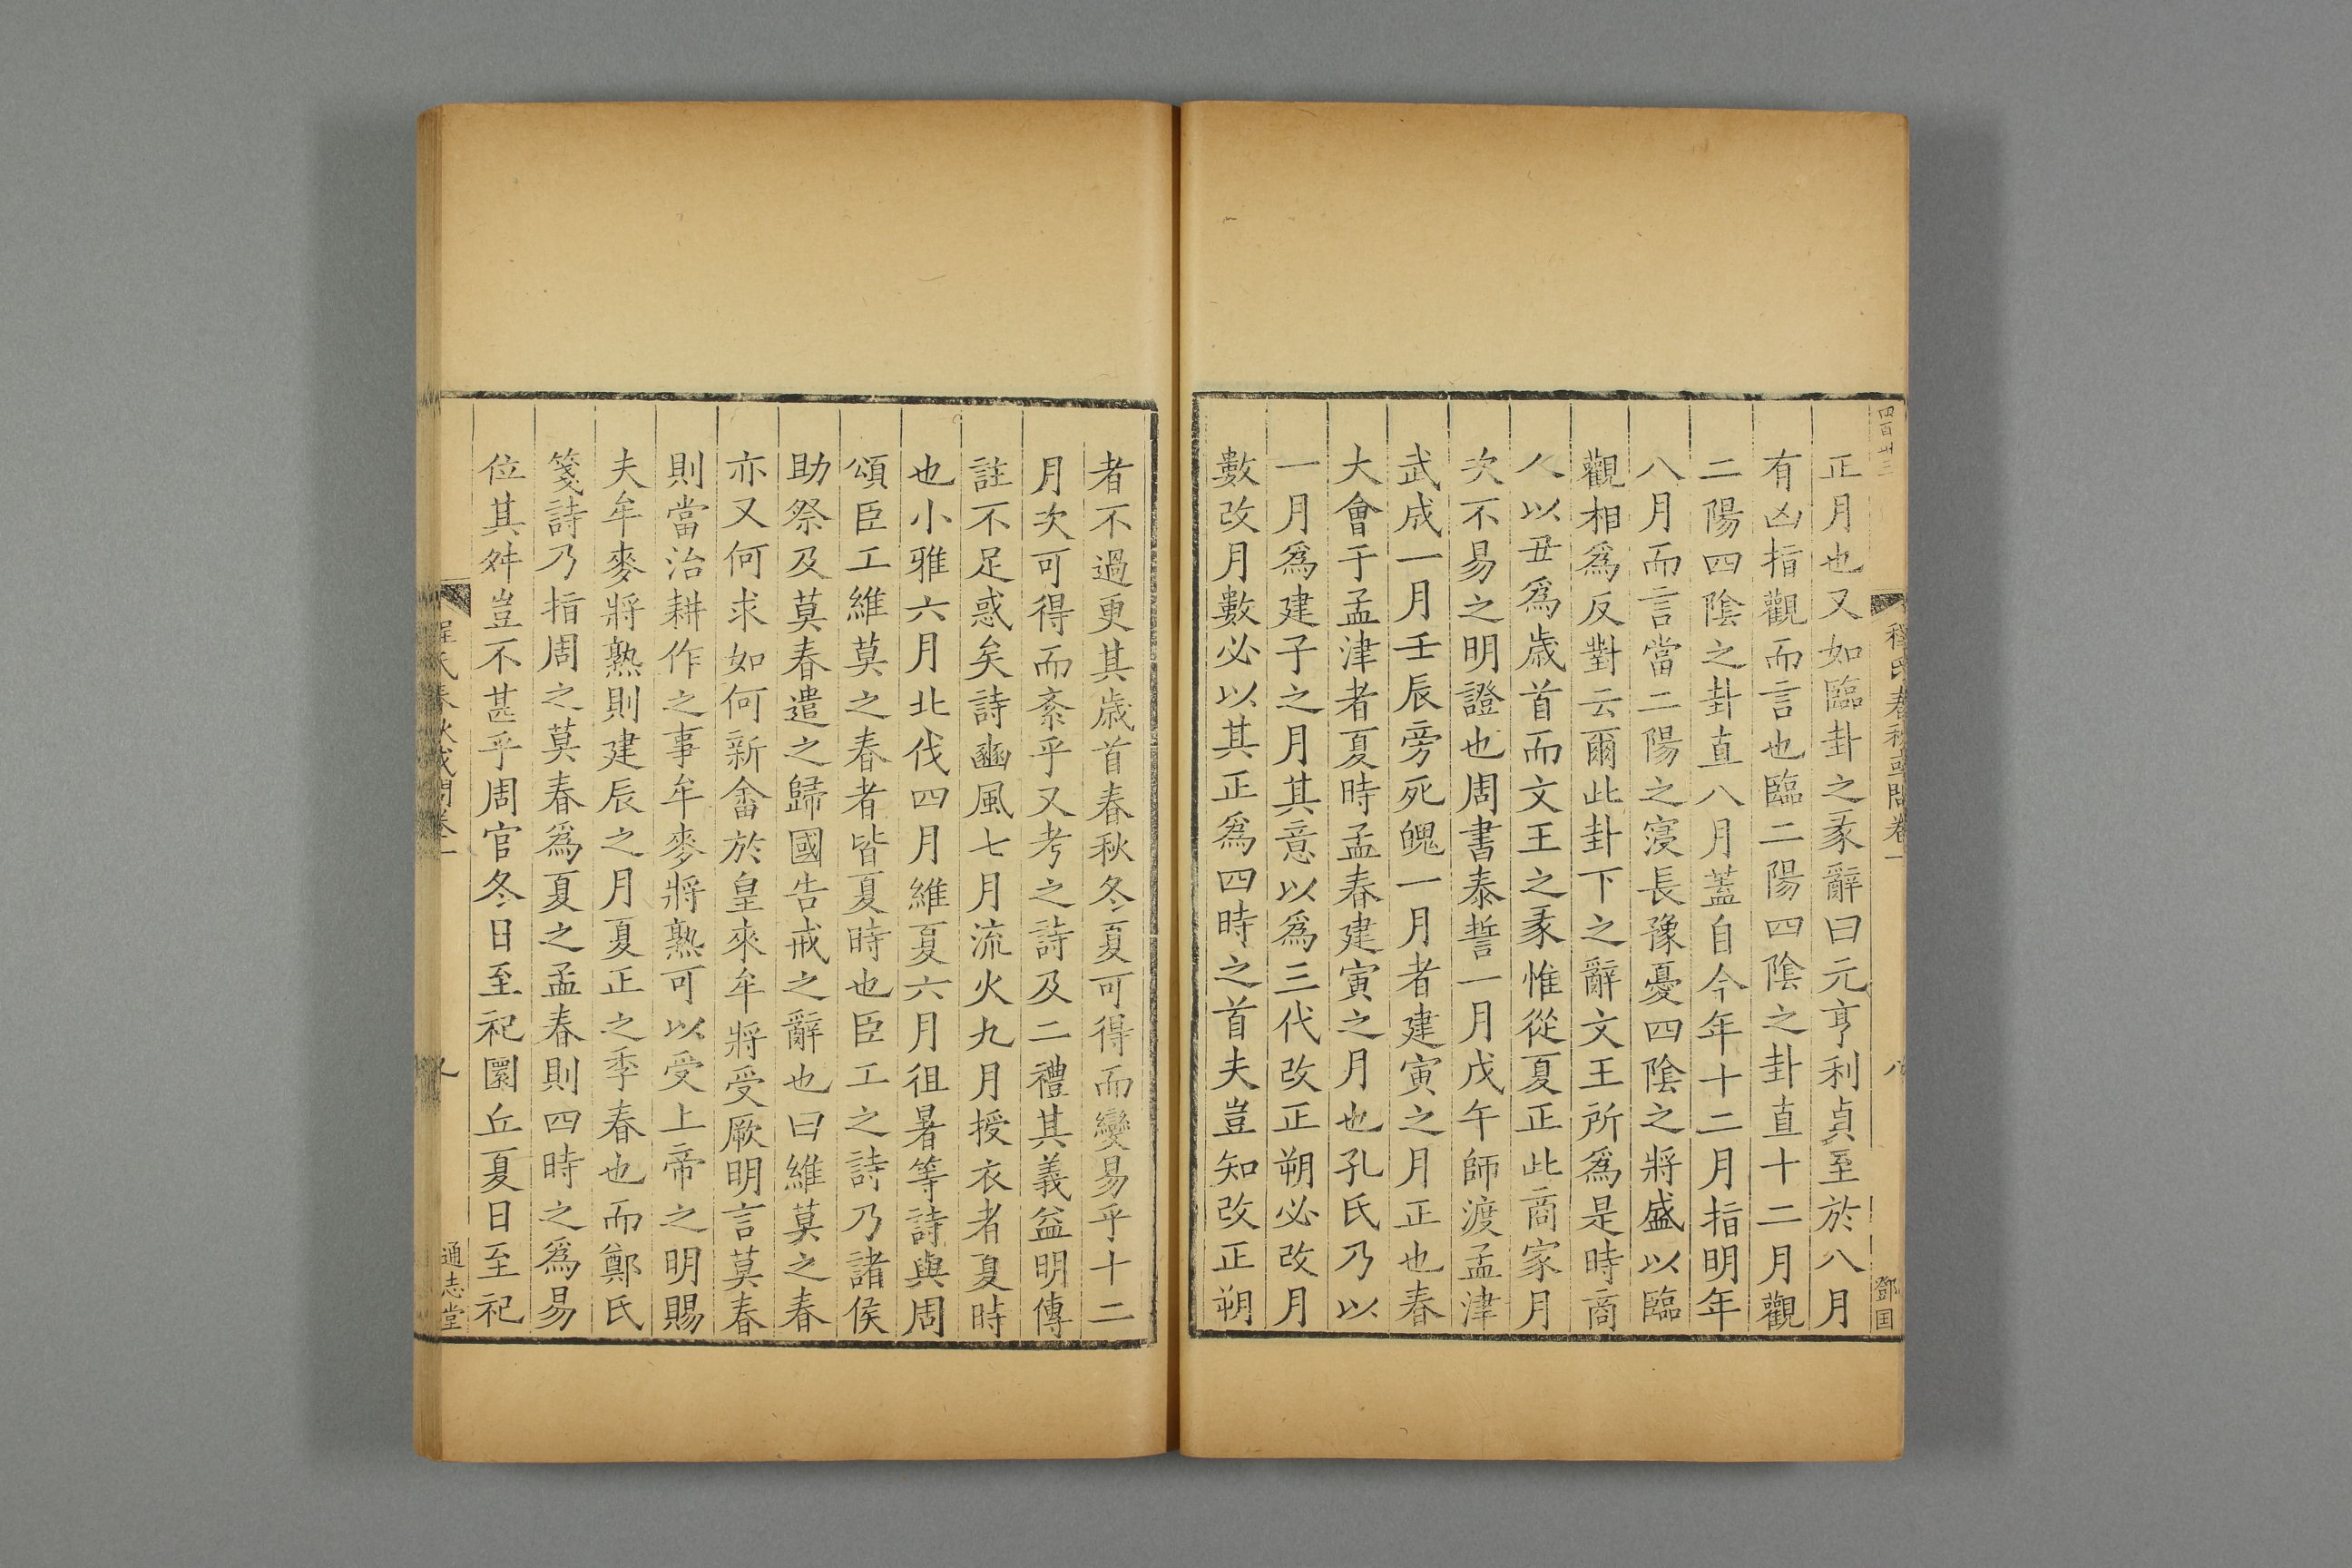 四百卅三
程氏春秋或問卷一
八
鄧国
正月也又如臨卦之彖辭曰元亨利貞至於八月
有凶指觀而言也臨二陽四陰之卦直十二月觀
二陽四陰之卦直八月蓋自今年十二月指明年
八月而言當二陽之寖長豫憂四陰之將盛以臨
觀相爲反對云爾此卦下之辭文王所爲是時商
人以丑爲歳首而文王之彖惟從夏正此商家月
次不易之明證也周書泰誓一月戊午師渡孟津
武成一月壬辰旁死魄一月者建寅之月正也春
大會于孟津者夏時孟春建寅之月也孔氏乃以
一月爲建子之月其意以爲三代改正朔必改月
數改月數必以其正爲四時之首夫豈知改正朔
者不過更其歳首春秋冬夏可得而變易乎十二
月次可得而紊乎又考之詩及二禮其義益明傳
註不足惑矣詩豳風七月流火九月授衣者夏時
也小雅六月北伐四月維夏六月徂暑等詩與周
頌臣工維莫之春者皆夏時也臣工之詩乃諸侯
助祭及莫春遣之歸國告戒之辭也曰維莫之春
亦又何求如何新畬於皇來牟將受厥明言莫春
則當治耕作之事牟麥將熟可以受上帝之明賜
夫牟麥將熟則建辰之月夏正之季春也而鄭氏
箋詩乃指周之莫春爲夏之孟春則四時之爲易
位其舛豈不甚乎周官冬日至祀圜丘夏日至祀
程氏春秋或問卷一
通志堂